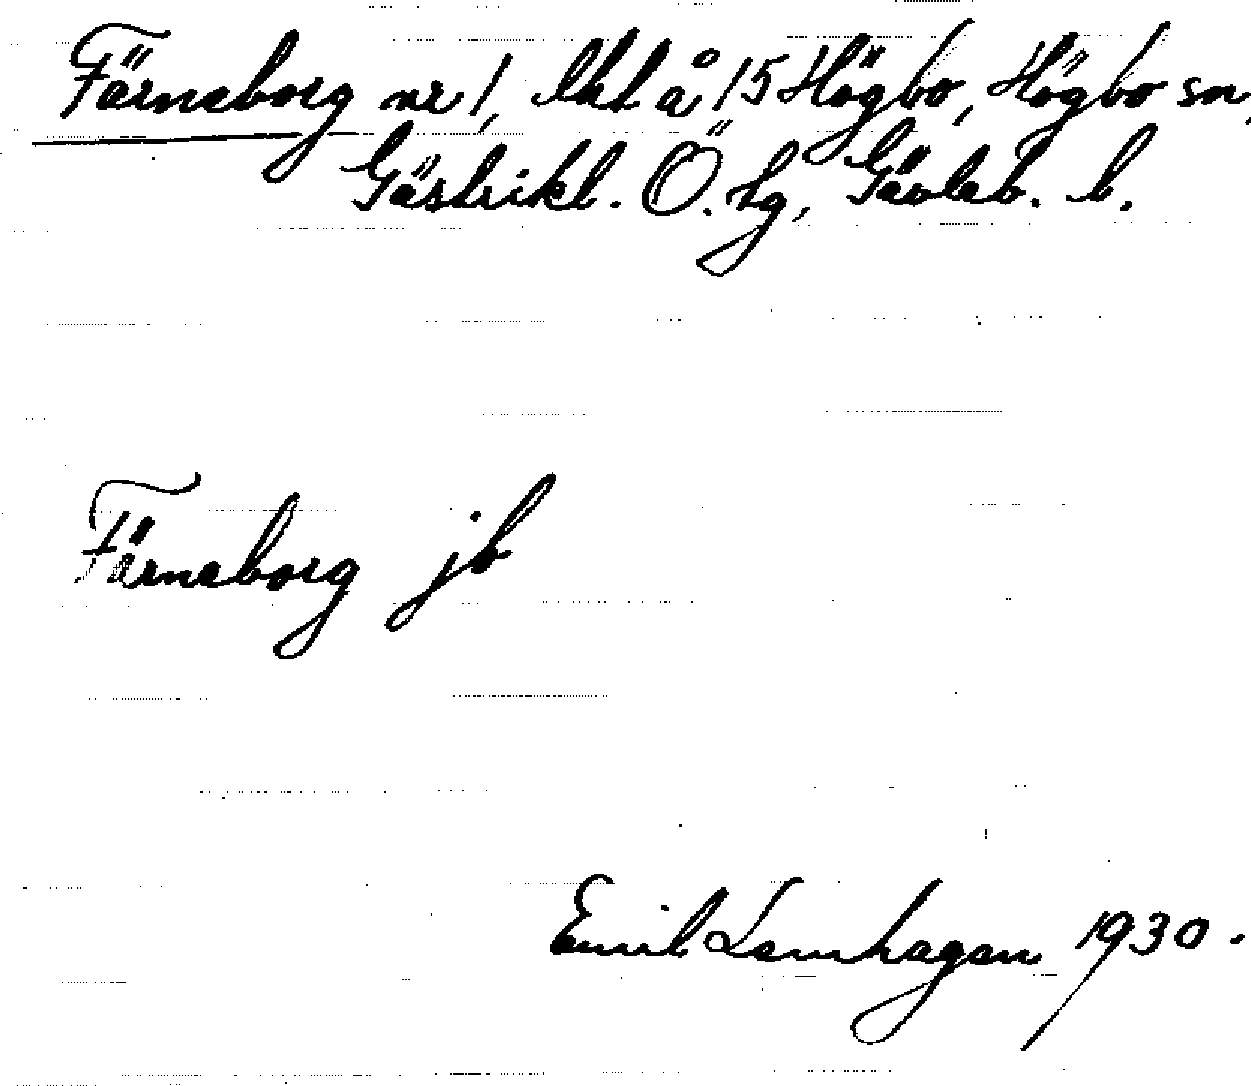 Färneborg nr 1, lht å 15 Högbo, Högbo sn,
Gästrikl. Ö. tg, Gävleb. l.
Färneborg jb
Emil Lemhagen 1930.